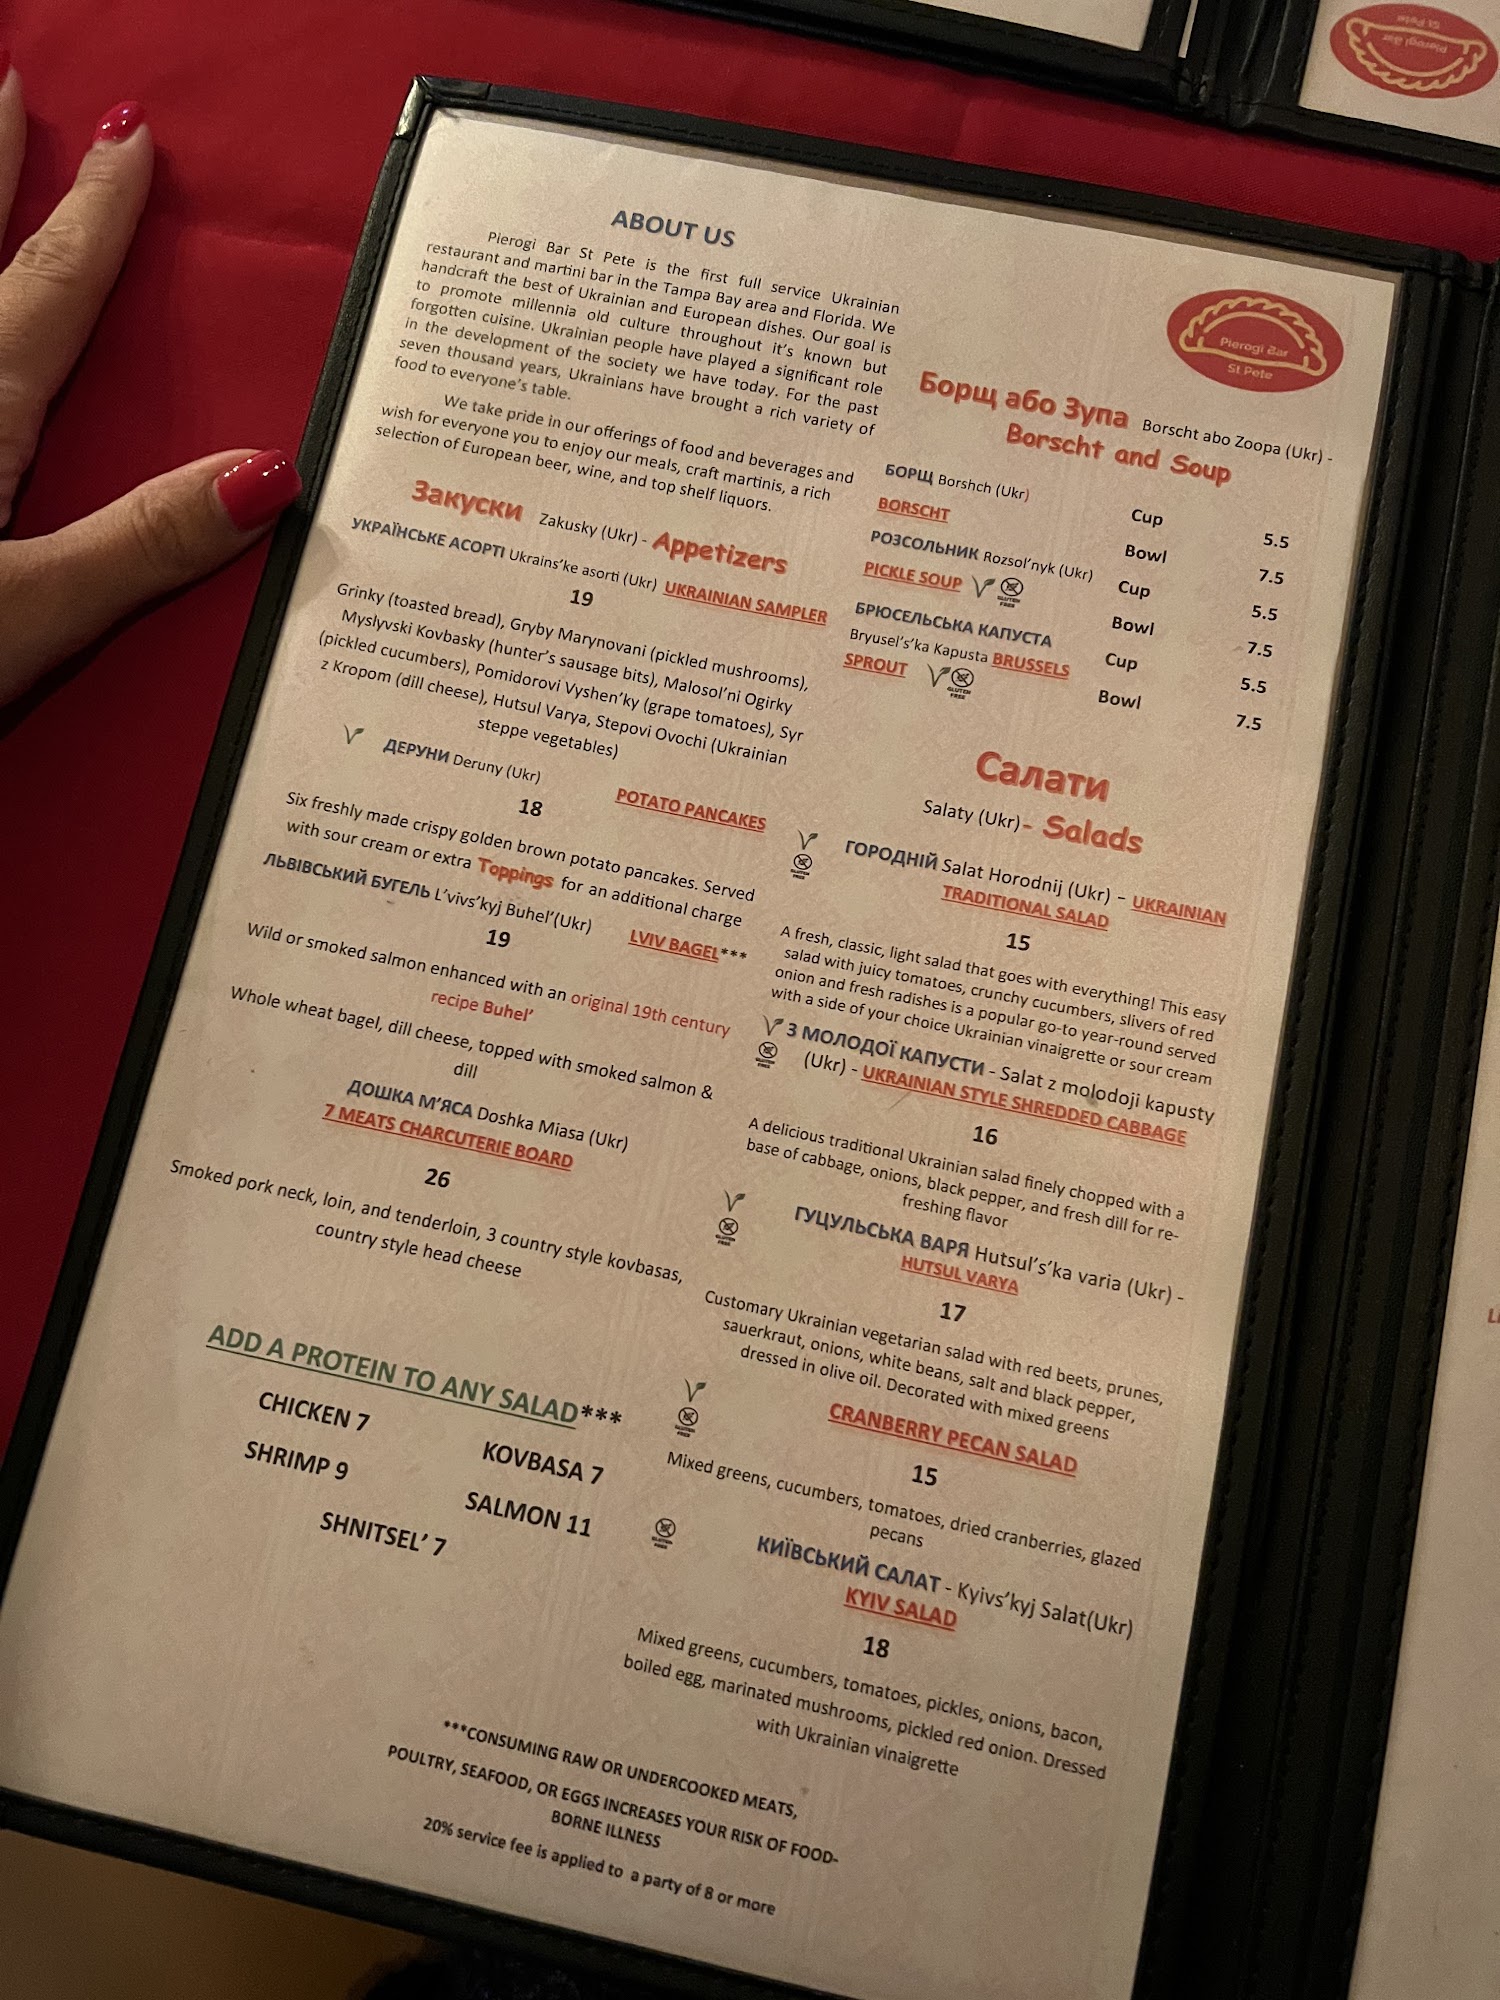 Pierogi Bar
St Pete
ABOUT US
Pierogi Bar St Pete is the first full service Ukrainian
restaurant and martini bar in the Tampa Bay area and Florida. We
handcraft the best of Ukrainian and European dishes. Our goal is
to promote millennia old culture throughout it's known but
forgotten cuisine. Ukrainian people have played a significant role
in the development of the society we have today. For the past
seven thousand years, Ukrainians have brought a rich variety of
food to everyone's table.
We take pride in our offerings of food and beverages and
wish for everyone you to enjoy our meals, craft martinis, a rich
selection of European beer, wine, and top shelf liquors.
Закуски Zakusky (Ukr) - Appetizers
УКРАЇНСЬКЕ АСОРТІ Ukrains'ke asorti (Ukr) UKRAINIAN SAMPLER
19
Grinky (toasted bread), Gryby Marynovani (pickled mushrooms),
Myslyvski Kovbasky (hunter's sausage bits), Malosol'ni Ogirky
(pickled cucumbers), Pomidorovi Vyshen'ky (grape tomatoes), Syr
z Kropom (dill cheese), Hutsul Varya, Stepovi Ovochi (Ukrainian
steppe vegetables)
ДЕРУНИ Deruny (Ukr)
POTATO PANCAKES
18
Six freshly made crispy golden brown potato pancakes. Served
with sour cream or extra Toppings for an additional charge
ЛЬВІВСЬКИЙ БУГЕЛЬ L'vivs'kyj Buhel'(Ukr)
LVIV BAGEL***
19
Wild or smoked salmon enhanced with an original 19th century
recipe Buhel'
Whole wheat bagel, dill cheese, topped with smoked salmon &
dill
ДОШКА М'ЯСА Doshka Miasa (Ukr)
7 MEATS CHARCUTERIE BOARD
26
Smoked pork neck, loin, and tenderloin, 3 country style kovbasas,
country style head cheese
ADD A PROTEIN TO ANY SALAD***
CHICKEN 7
KOVBASA 7
SHRIMP 9
SALMON 11
SHNITSEL' 7
Pierogi Bar
St Pete
Борщ або Зупа Borscht abo Zoopa (Ukr) -
Borscht and Soup
БОРЩ Borshch (Ukr)
BORSCHT
Cup 5.5
Bowl 7.5
РОЗСОЛЬНИК Rozsol'nyk (Ukr)
PICKLE SOUP GLUTEN FREE
Cup 5.5
Bowl 7.5
БРЮСЕЛЬСЬКА КАПУСТА
Bryusel's'ka Kapusta BRUSSELS
SPROUT GLUTEN FREE
Cup 5.5
Bowl 7.5
Салати
Salaty (Ukr)- Salads
GLUTEN FREE
ГОРОДНІЙ Salat Horodnij (Ukr) - UKRAINIAN
TRADITIONAL SALAD
15
A fresh, classic, light salad that goes with everything! This easy
salad with juicy tomatoes, crunchy cucumbers, slivers of red
onion and fresh radishes is a popular go-to year-round served
with a side of your choice Ukrainian vinaigrette or sour cream
GLUTEN FREE
З МОЛОДОЇ КАПУСТИ - Salat z molodoji kapusty
(Ukr) - UKRAINIAN STYLE SHREDDED CABBAGE
16
A delicious traditional Ukrainian salad finely chopped with a
base of cabbage, onions, black pepper, and fresh dill for re-
freshing flavor
GLUTEN FREE
ГУЦУЛЬСЬКА ВАРЯ Hutsul's'ka varia (Ukr) -
HUTSUL VARYA
17
Customary Ukrainian vegetarian salad with red beets, prunes,
sauerkraut, onions, white beans, salt and black pepper,
dressed in olive oil. Decorated with mixed greens
GLUTEN FREE
CRANBERRY PECAN SALAD
15
Mixed greens, cucumbers, tomatoes, dried cranberries, glazed
pecans
GLUTEN FREE
КИЇВСЬКИЙ САЛАТ - Kyivs'kyj Salat(Ukr)
KYIV SALAD
18
Mixed greens, cucumbers, tomatoes, pickles, onions, bacon,
boiled egg, marinated mushrooms, pickled red onion. Dressed
with Ukrainian vinaigrette
***CONSUMING RAW OR UNDERCOOKED MEATS,
POULTRY, SEAFOOD, OR EGGS INCREASES YOUR RISK OF FOOD-
BORNE ILLNESS
20% service fee is applied to a party of 8 or more